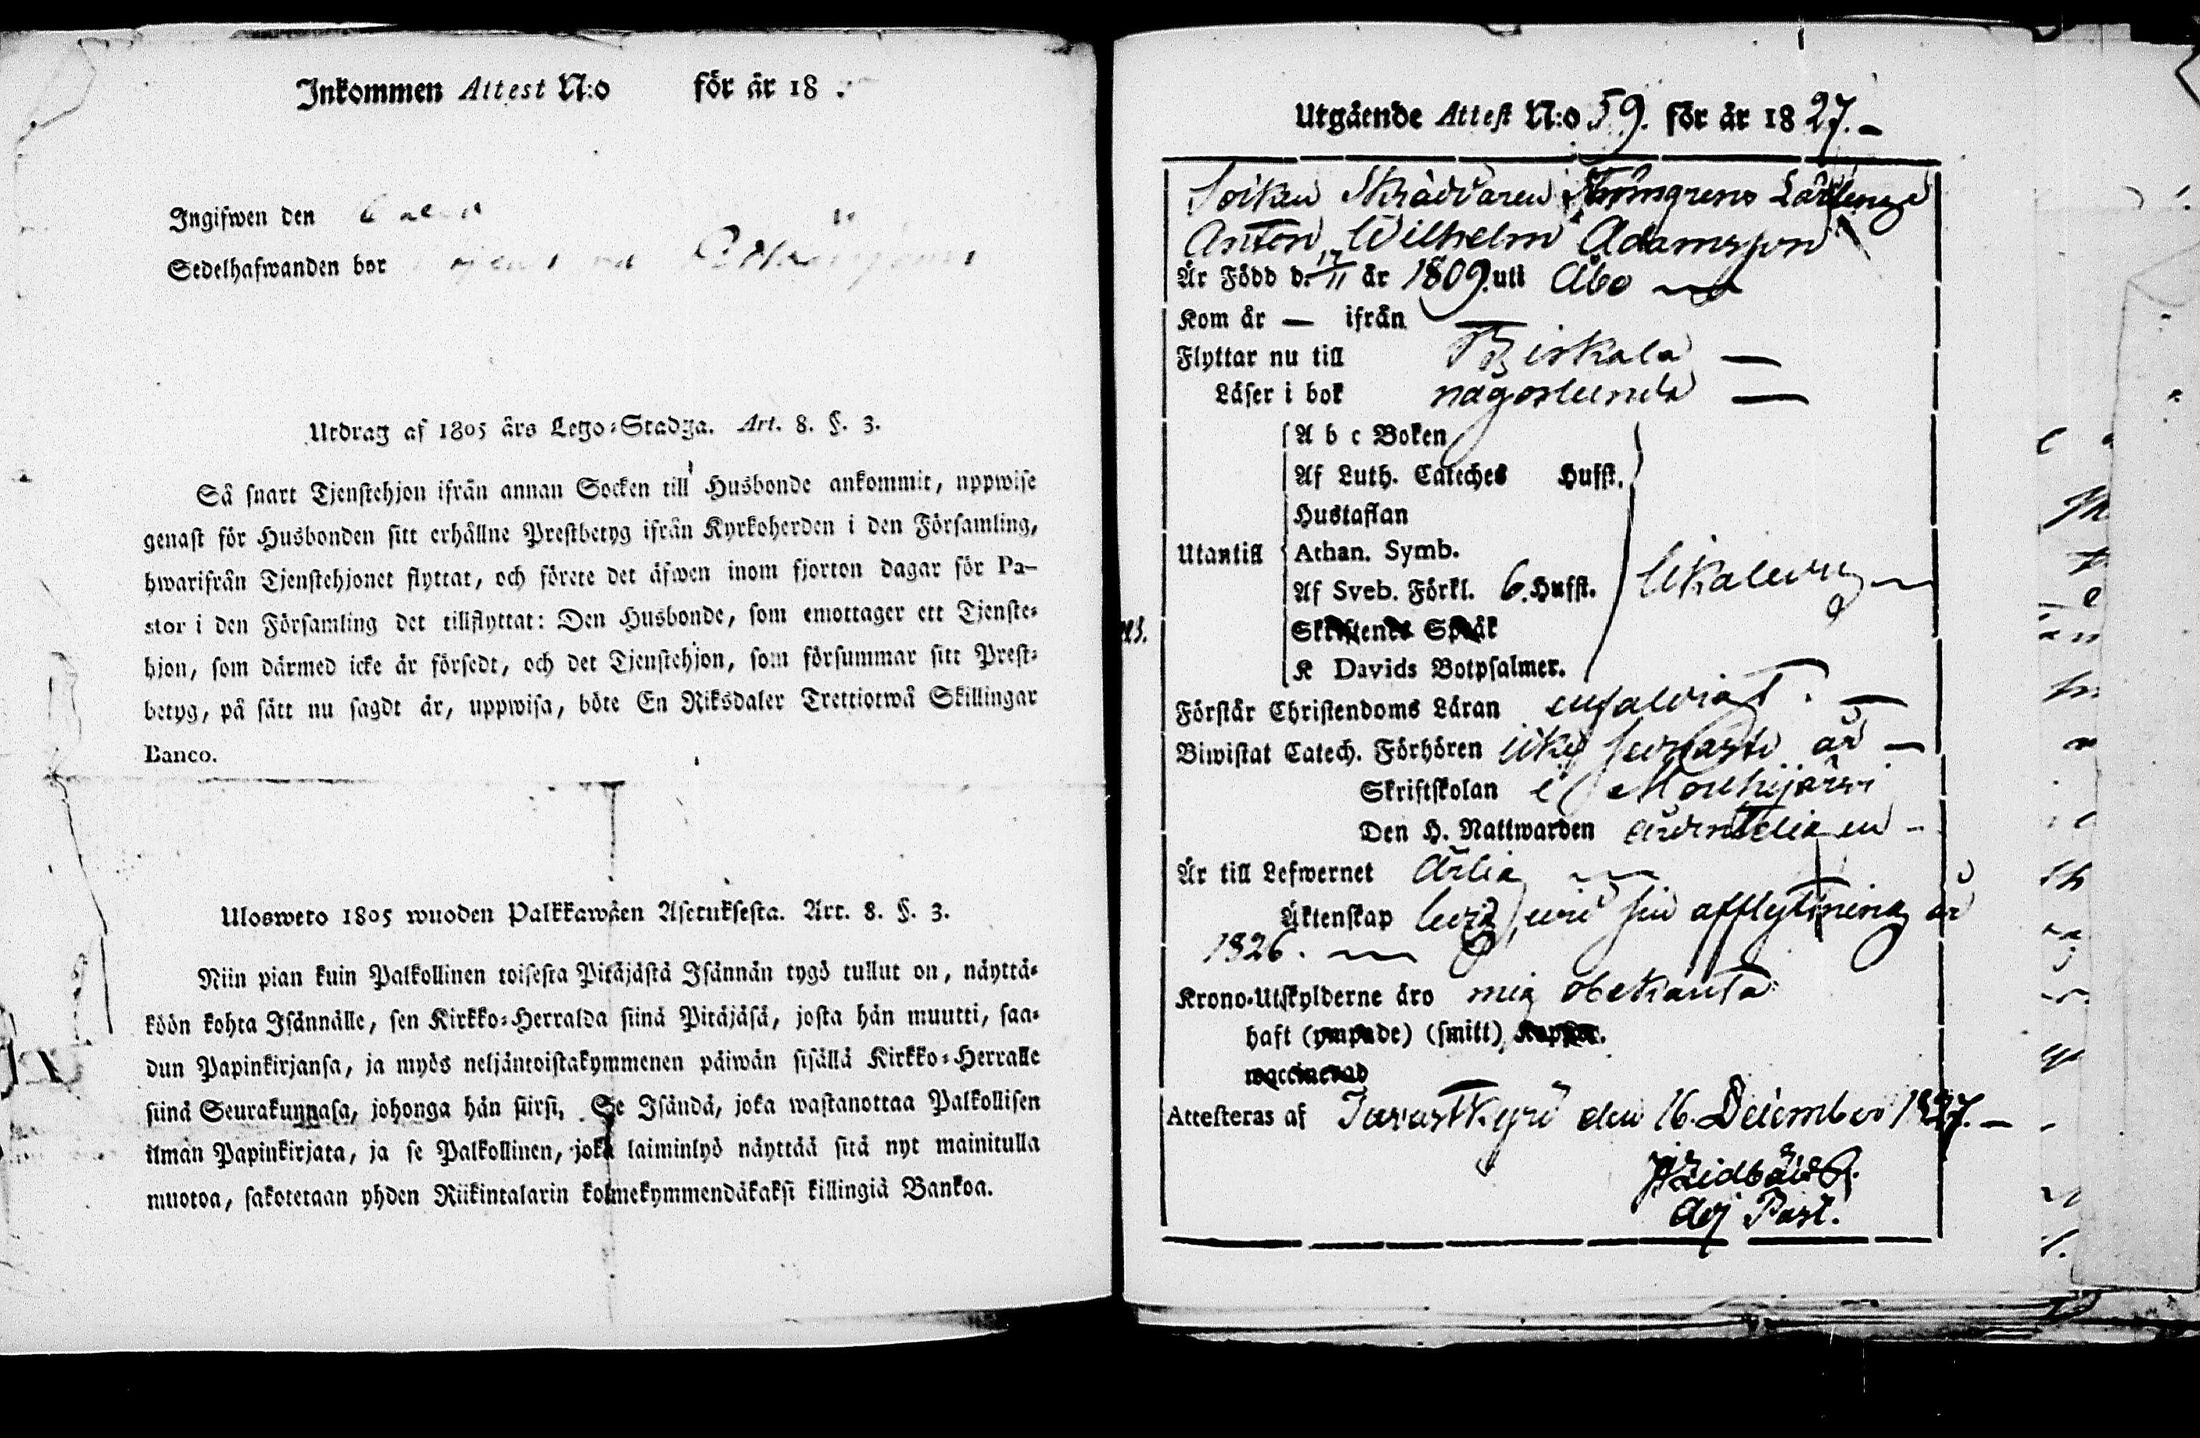 Inkommen Attest N:o för år 18
Ingifwen den
Sedelhafwanden bor
Utdrag af 1805 års Lego-Stadga. Art. 8. §. 3.
Så snart Tjenstehjon ifrån annan Socken till Husbonde ankommit, uppwise
genast för Husbonden sitt erhållne Prestbetyg ifrån Kyrkoherden i den Församling,
hwarifrån Tjenstehjonet flyttat, och förete det äfwen inom fjorton dagar för Pa-
stor i den Församling det tillflyttat: Den Husbonde, som emottager ett Tjenste-
hjon, som därmed icke är försedt, och det Tjenstehjon, som försummar sitt Prest-
betyg, på sätt nu sagdt är, uppwisa, böte En Riksdaler Trettiotwå Skillingar
Banco.
Ulosweto 1805 wuoden Palkkawäen Asetuksesta. Art. 8. §. 3.
Niin pian kuin Palkollinen toisesta Pitäjästä Isännän tygö tullut on, näyttä-
köön kohta Isännälle, sen Kirkko-Herralda siinä Pitäjäsä, josta hän muutti, saa-
dun Papinkirjansa, ja myös neljäntoistakymmenen päiwän sisällä Kirkko-Herralle
siinä Seurakunnasa, johonga hän siirsi. Se Isändä, joka wastanottaa Palkollisen
ilman Papinkirjata, ja se Palkollinen, joka laiminlyö näyttää sitä nyt mainitulla
muotoa, sakotetaan yhden Riikintalarin kolmekymmendäkaksi killingiä Bankoa.
Utgående Attest N:o 59. för år 1827.
Sokne Skräddaren Strömgrens Lärlinge
Anton Wilhelm Adamsson
Är Född d. 17/11 år 1809. uti Åbo
Kom år — ifrån —
Flyttar nu till Birkala —
Läser i bok någorlunda —
A b c Boken
Af Luth. Cateches Hufst.
Hustaflan
Utantill Athan. Symb.
Af Sveb. Förkl. 6. Hufst. likaledes
Skriftenes Språk
K Davids Botpsalmer.
Förstår Christendoms Läran enfaldigt. —
Biwistat Catech. Förhören icke sednaste år —
Skriftskolan i Mouhijärvi
Den H. Nattwarden ordentligen -
Är till Lefwernet ärlig
Äktenskap ledig wid sin afflyttning år
1826.
Krono-Utskylderne äro mig obekanta
haft (ympade) (smitt) Koppor.
waccinerad
Attesteras af Tavastkyrö den 16. December 1827. —
Adj Past.